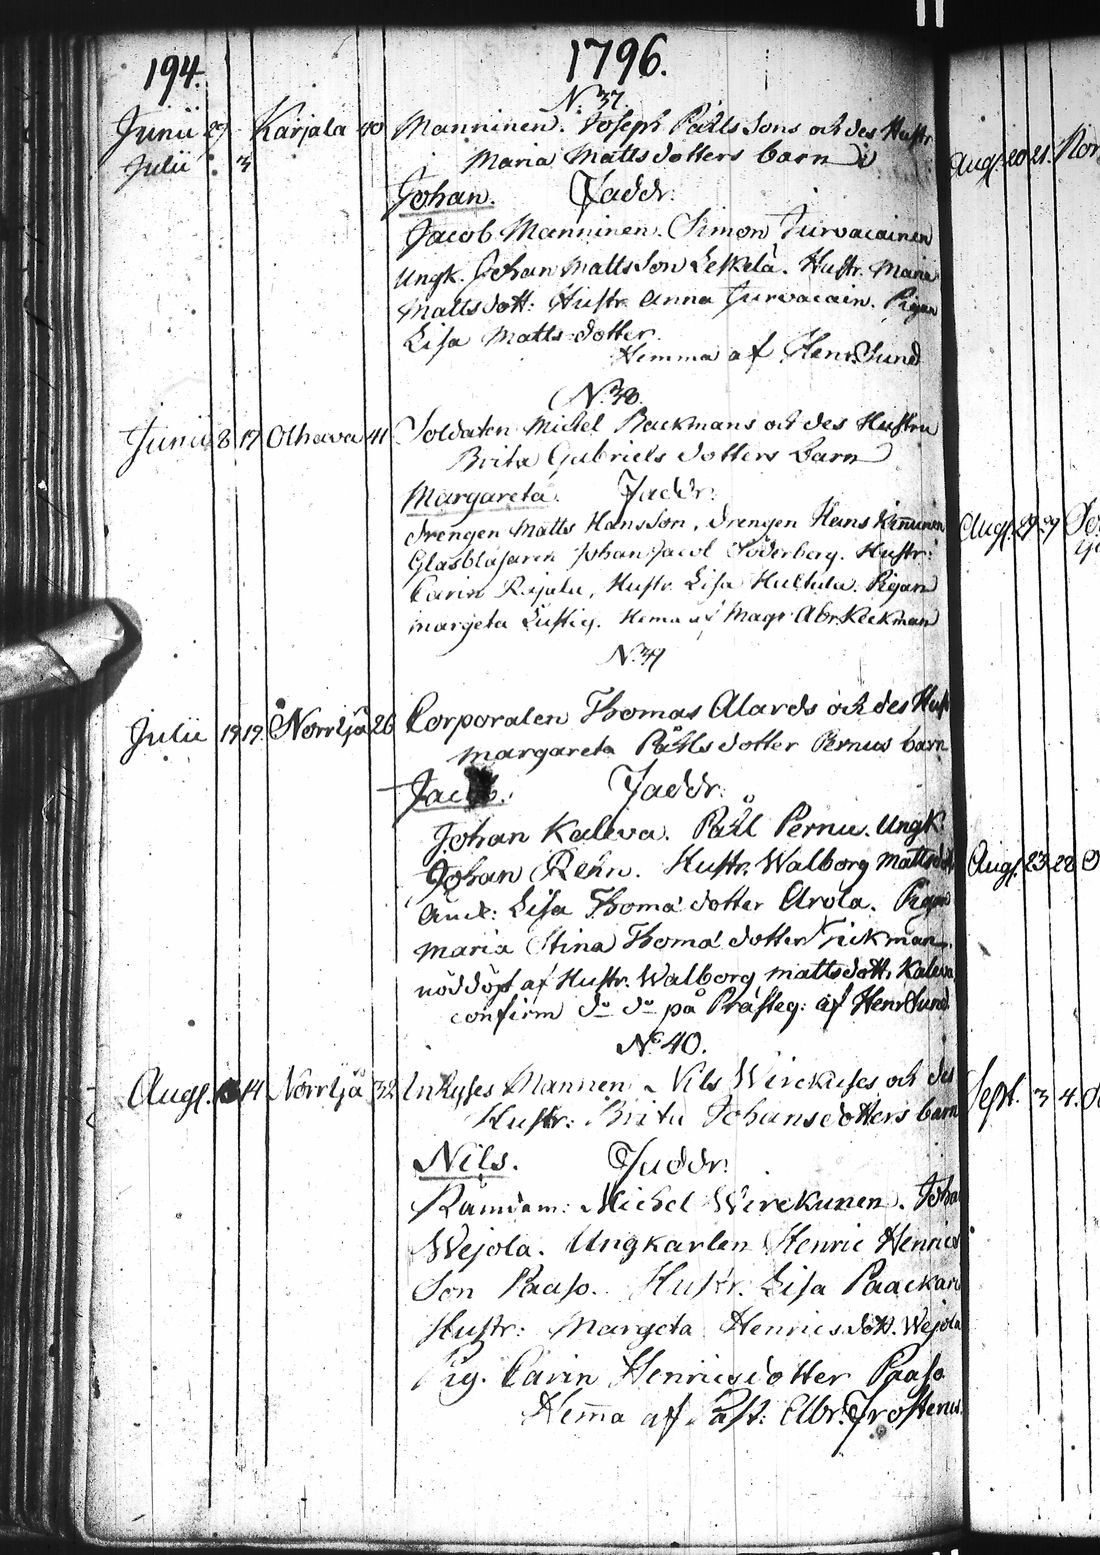 194.
1796.
N:37.
Junii 29 Karjala 40 Manninen. Joseph Påhls Sons och des Hustr
Julii 3 Maria Mattsdotters barn
Johan. Faddr:
Jacob Manninen. Simon Turvacainen
Ungk. Johan Mattsson Leskelä. Hustr. Maria
Mattsdott: Hustr. Anna Turvacain. Pigan
Lisa Mattsdotter.
Hemma af Henr. Sund
N:38.
Junii 8 17 Olhava 41 Soldaten Michel Backmans och des Hustru
Brita Gabriels dotters barn
Margareta. Faddr:
drengen Matts Hansson, drengen Hans Kinnunen
Glasblåsaren Johan Jacob Söderberg. Hustr:
Carin Hustr. Lisa Huttula. Pigan
margeta Lustig. Hema af Mag: Abr. Keckman
N:39
Julii 19 19. Norrljå 26 Corporalen Thomas Alards och des Hust
margareta Påhlsdotter Pernus barn
Jacob. Faddr:
Johan Kaleva. Påhl Pernu. Ungk.
Johan Rehn. Hustr. Walborg Mattsdott
Lisa Thomædotter Arola. Pigan
maria Stina Thomædotter Frickman.
nöddöpt af Hustr. Walborg mattsdott. Kaleva
confirm do do på Prästeg: af Henr Sund
No 40.
Aug. 14 Norrljå 32 Inhyses Mannen Nils Wirckuses och des
Hustr: Brita Johansdotters barn
Nils. Faddr:
Nämdem: Michel Wirckunen. Joha
Wejola. Ungkarlen Henric Henrics
Son Paaso. Hustr. Lisa Paackari
Hustr: Margeta Henricsdott. Wejola
Pig. Carin Henricsdotter Paaso.
Hema af Past: Abr. Frosterus.
Aug. 20 21. Nor
Aug. 29
Aug. 23 28
Sept. 3 4.